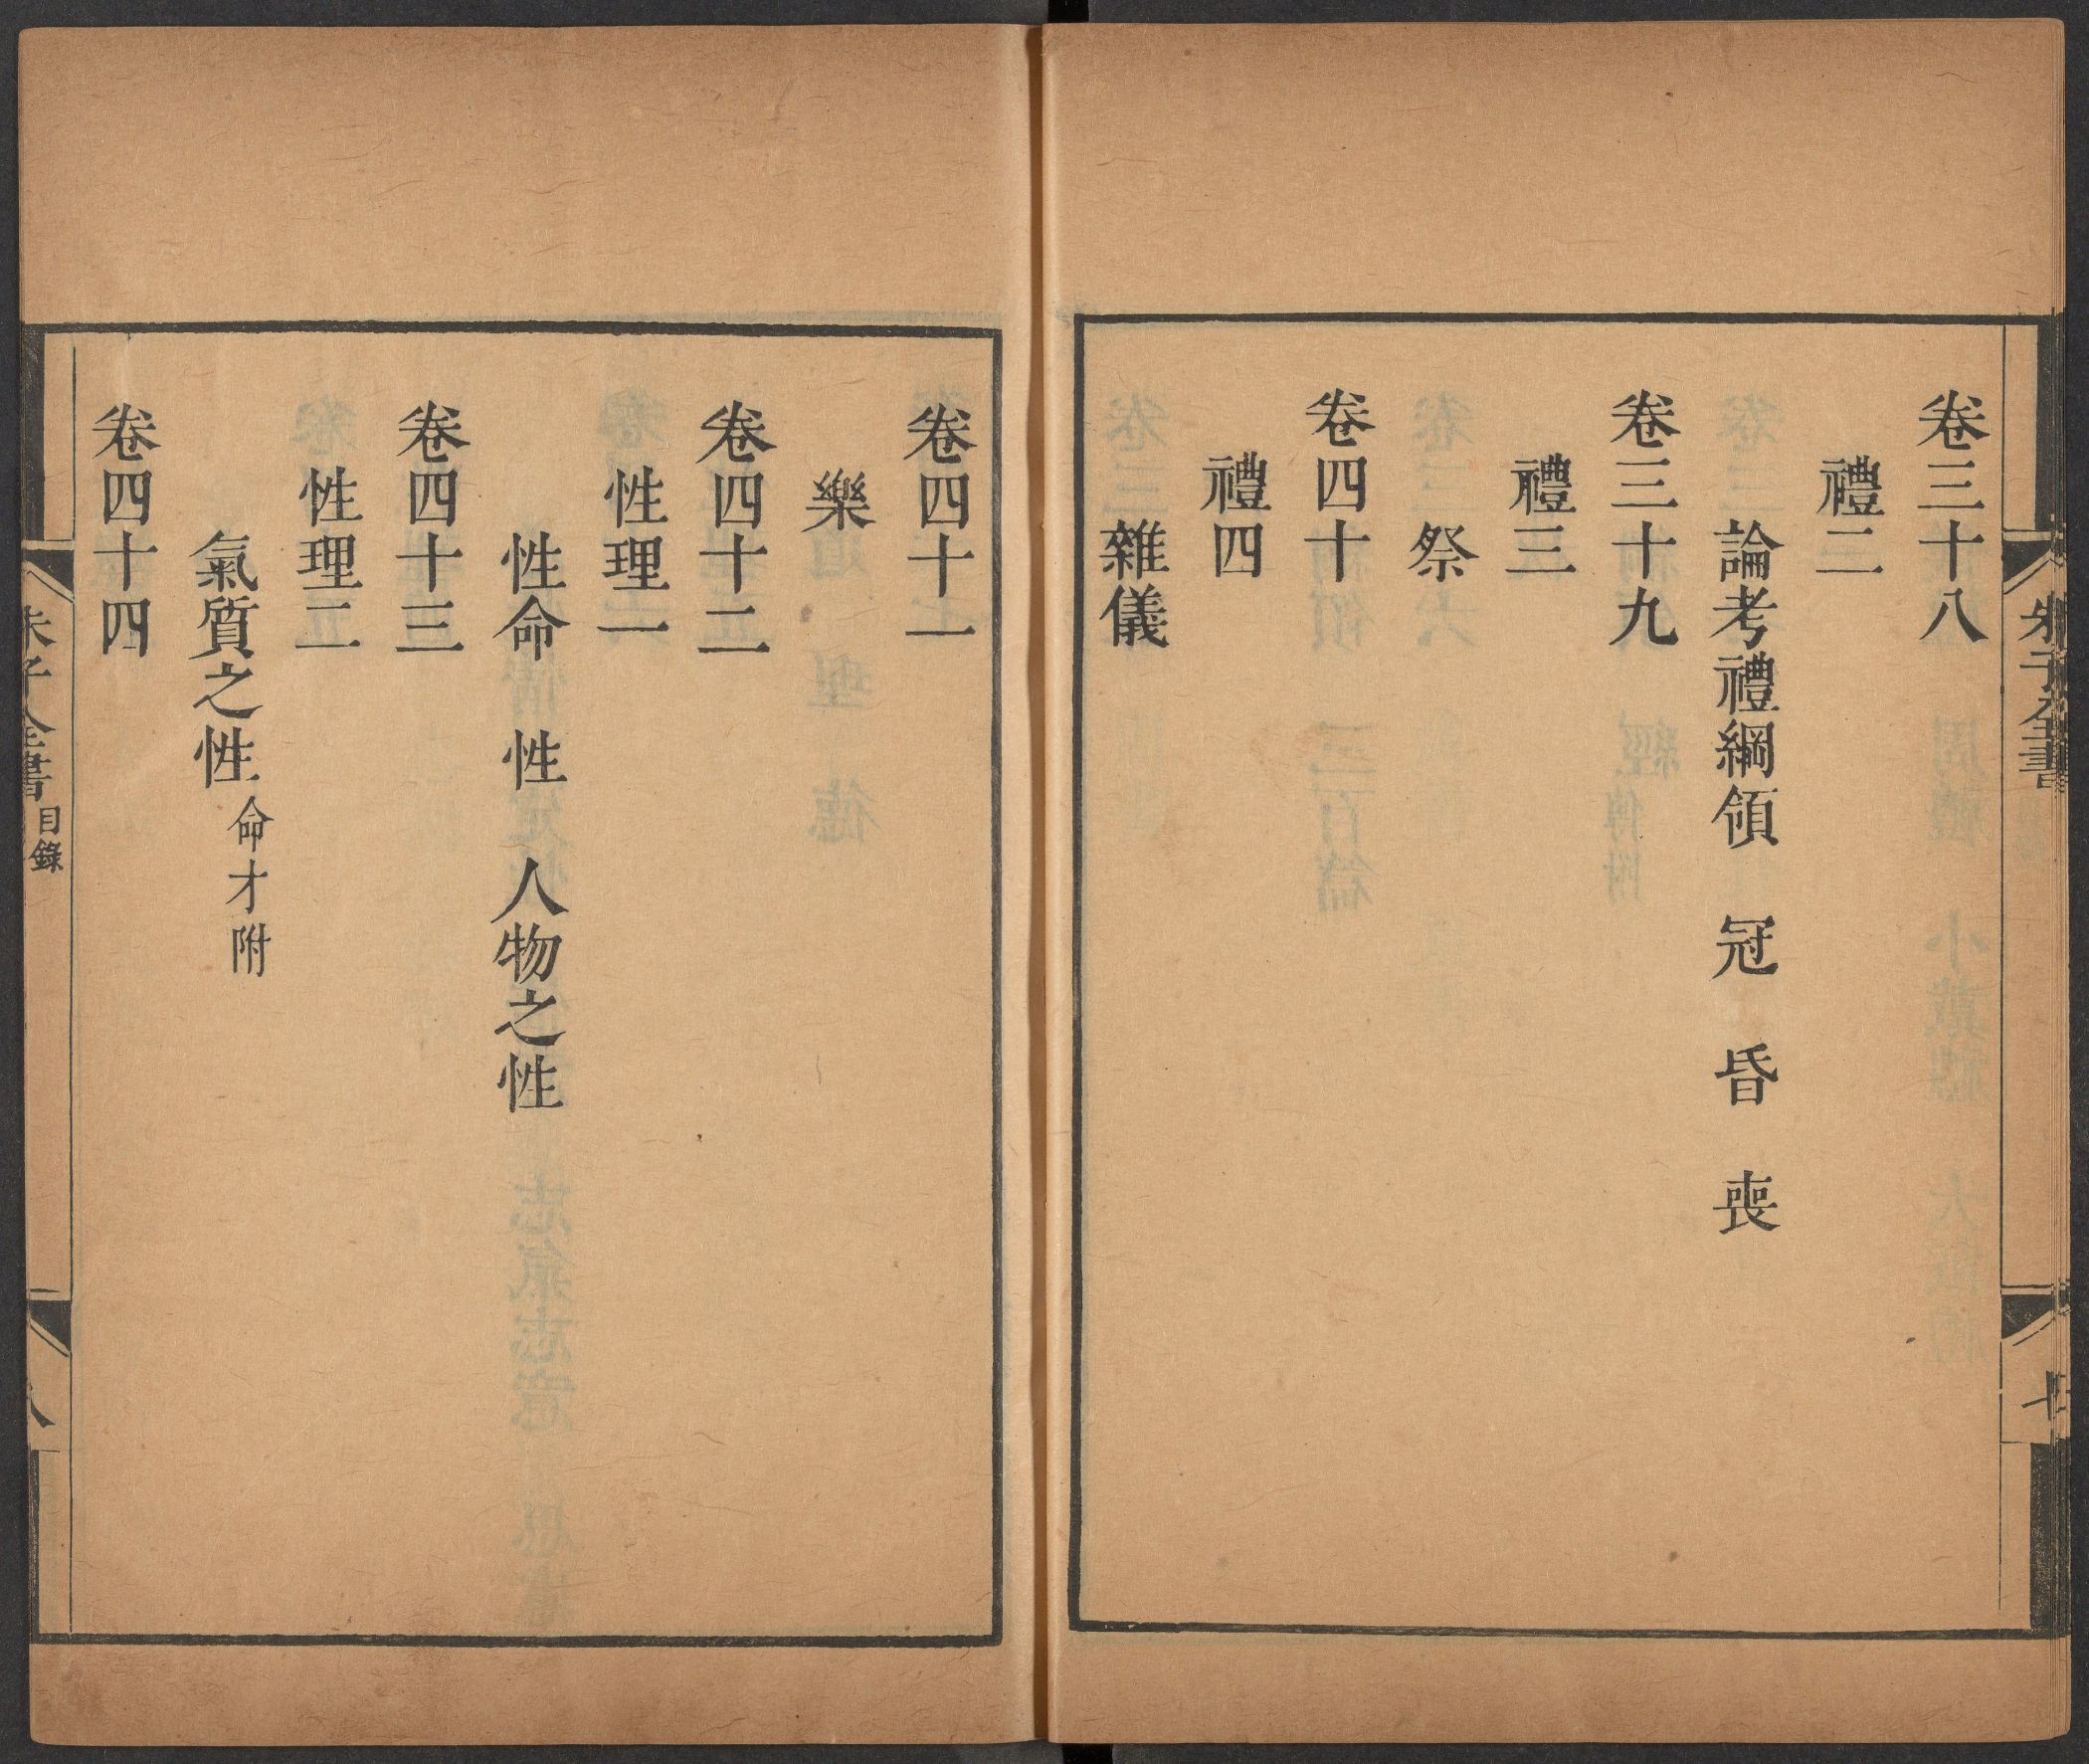 卷三十八
禮二
論考禮綱領 冠 昏 喪
卷三十九
禮三
祭
卷四十
禮四
雜儀
朱子全書
卷四十一
樂
卷四十二
性理一
性命 性 人物之性
卷四十三
性理二
氣質之性 命才附
卷四十四
朱子全書 目錄 八